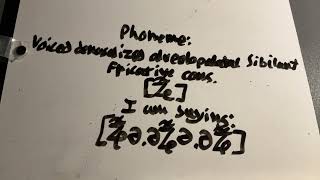 Phoneme:
Voiced denasalized alveolopalatal Sibilant
Fricative cons.
[ʑ͊]
I am saying:
[ʑ͊ə.əʑ͊ə.əʑ͊]